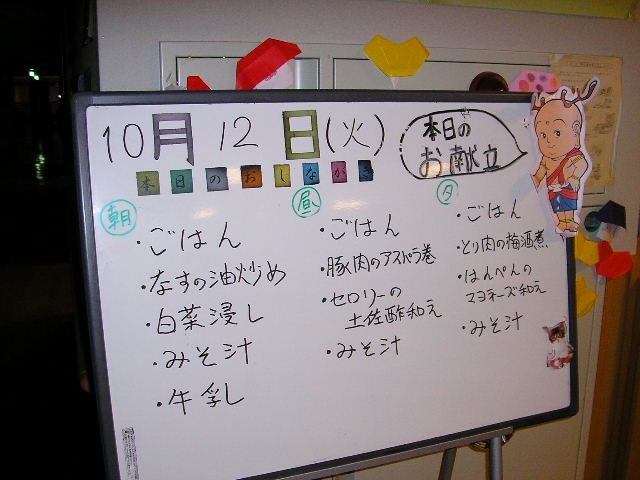 10月12日(火)
本日の
お献立
本日のおしながき
朝
・ごはん
・なすの油炒め
・白菜浸し
・みそ汁
・牛乳し
昼
・ごはん
・豚肉のアスパラ巻
・セロリーの
土佐酢和え
・みそ汁
夕
・ごはん
・とり肉の梅酒煮
・はんぺんの
マヨネーズ和え
・みそ汁